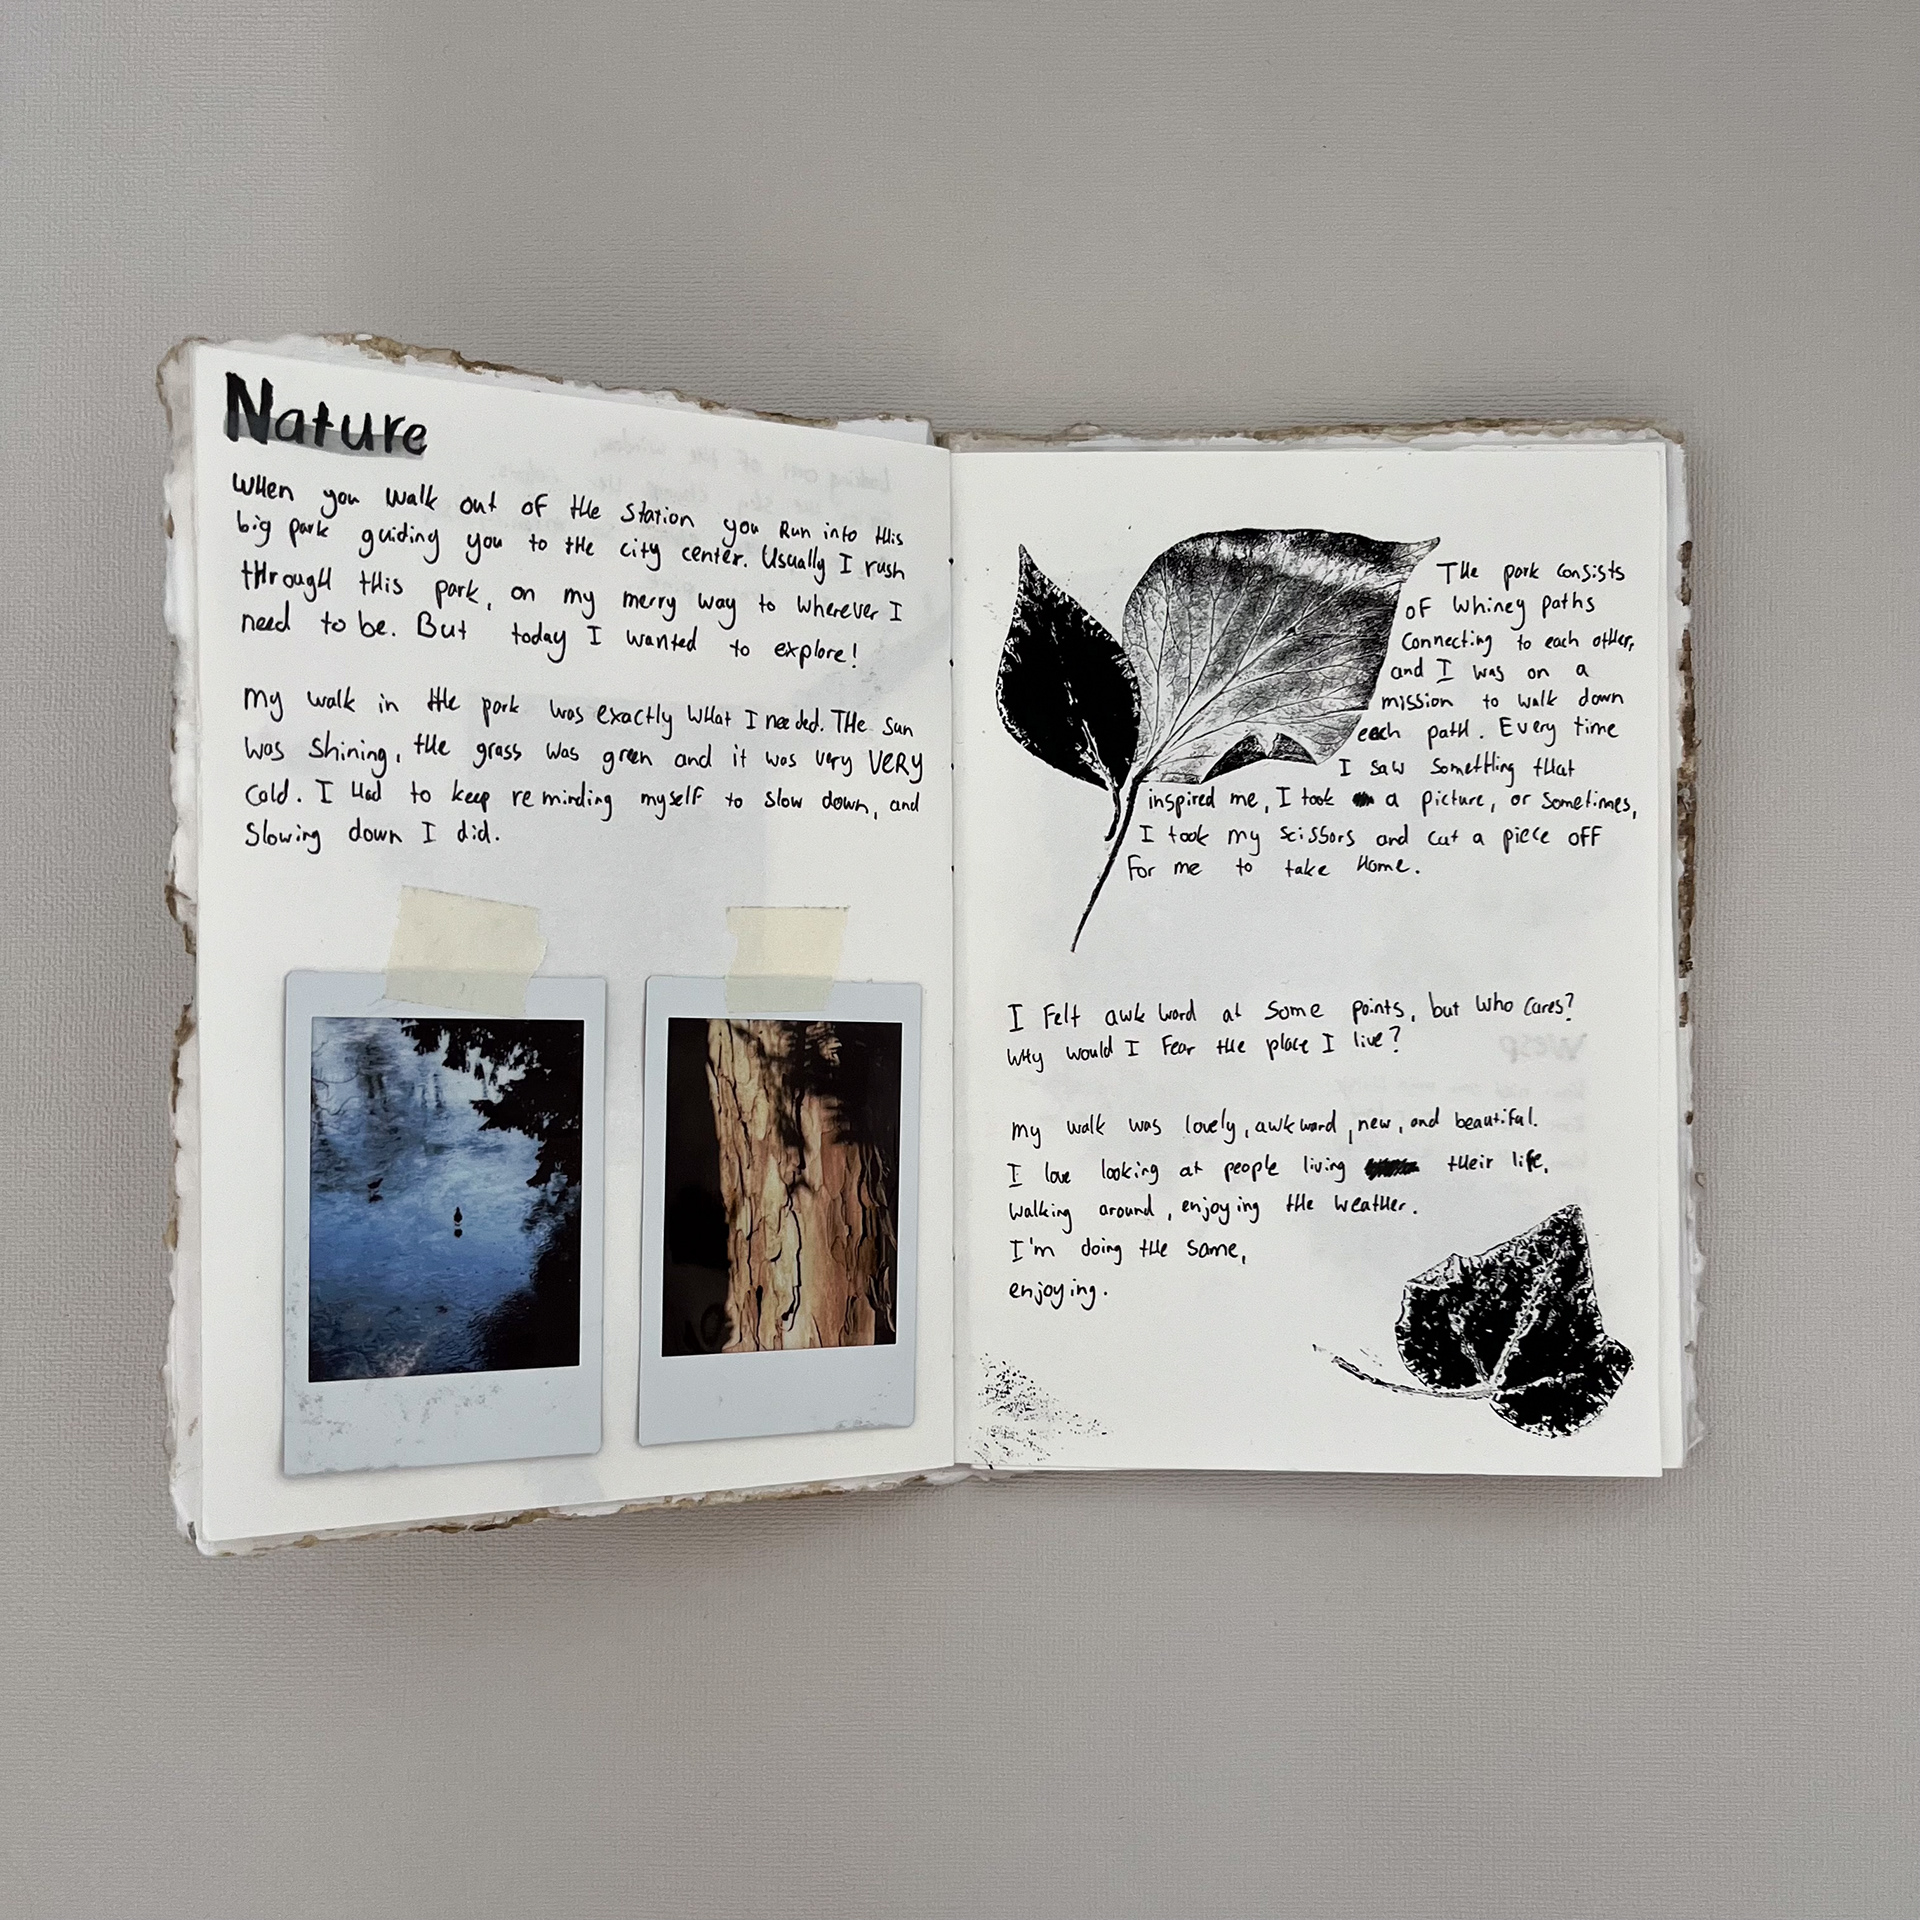 Nature
When you walk out of the station you Run into this
big park guiding you to the city center. Usually I rush
through this park, on my merry way to wherever I
need to be. But today I wanted to explore!
my walk in the park was exactly what I needed. The sun
was shining, the grass was green and it was very VERY
cold. I had to keep reminding myself to slow down, and
slowing down I did.
The park consists
of whiney paths
connecting to each other,
and I was on a
mission to walk down
each path. Every time
I saw something that
inspired me, I took a picture, or sometimes,
I took my scissors and cut a piece off
for me to take home.
I felt awkward at some points, but who cares?
Why would I fear the place I live?
my walk was lovely, awkward, new, and beautiful.
I love looking at people living their life,
walking around, enjoying the weather.
I'm doing the same,
enjoying.